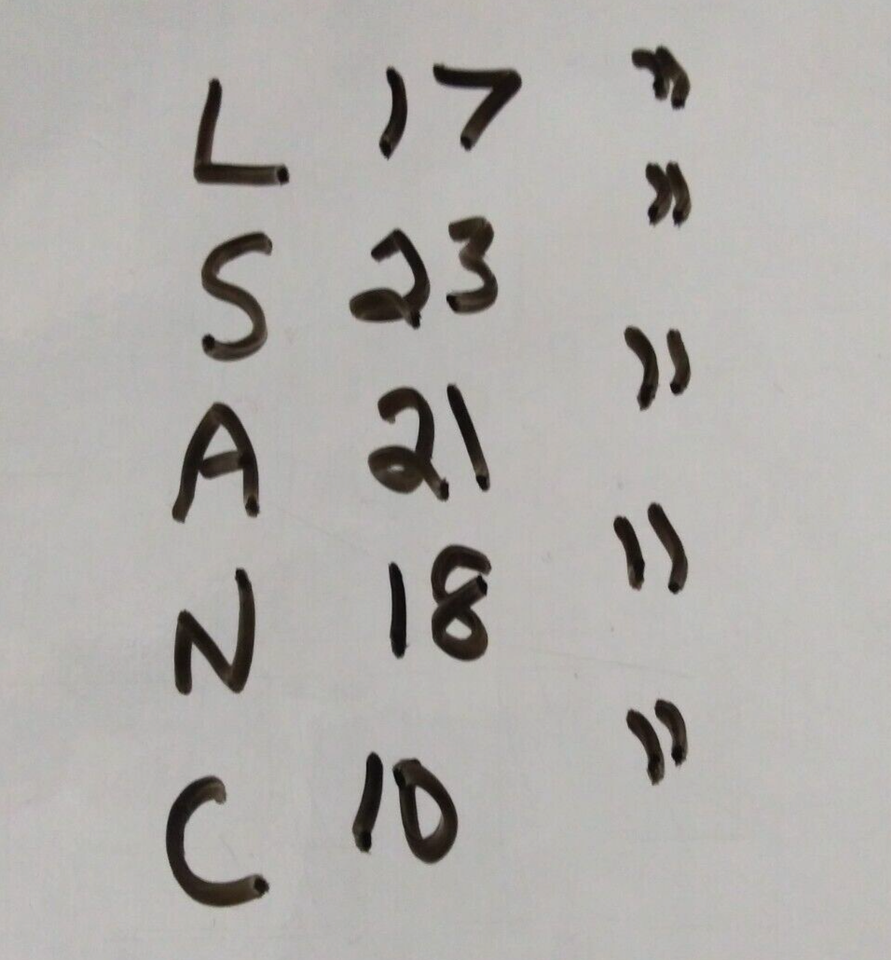 L 17 "
S 23 "
A 21 "
N 18 "
C 10 "